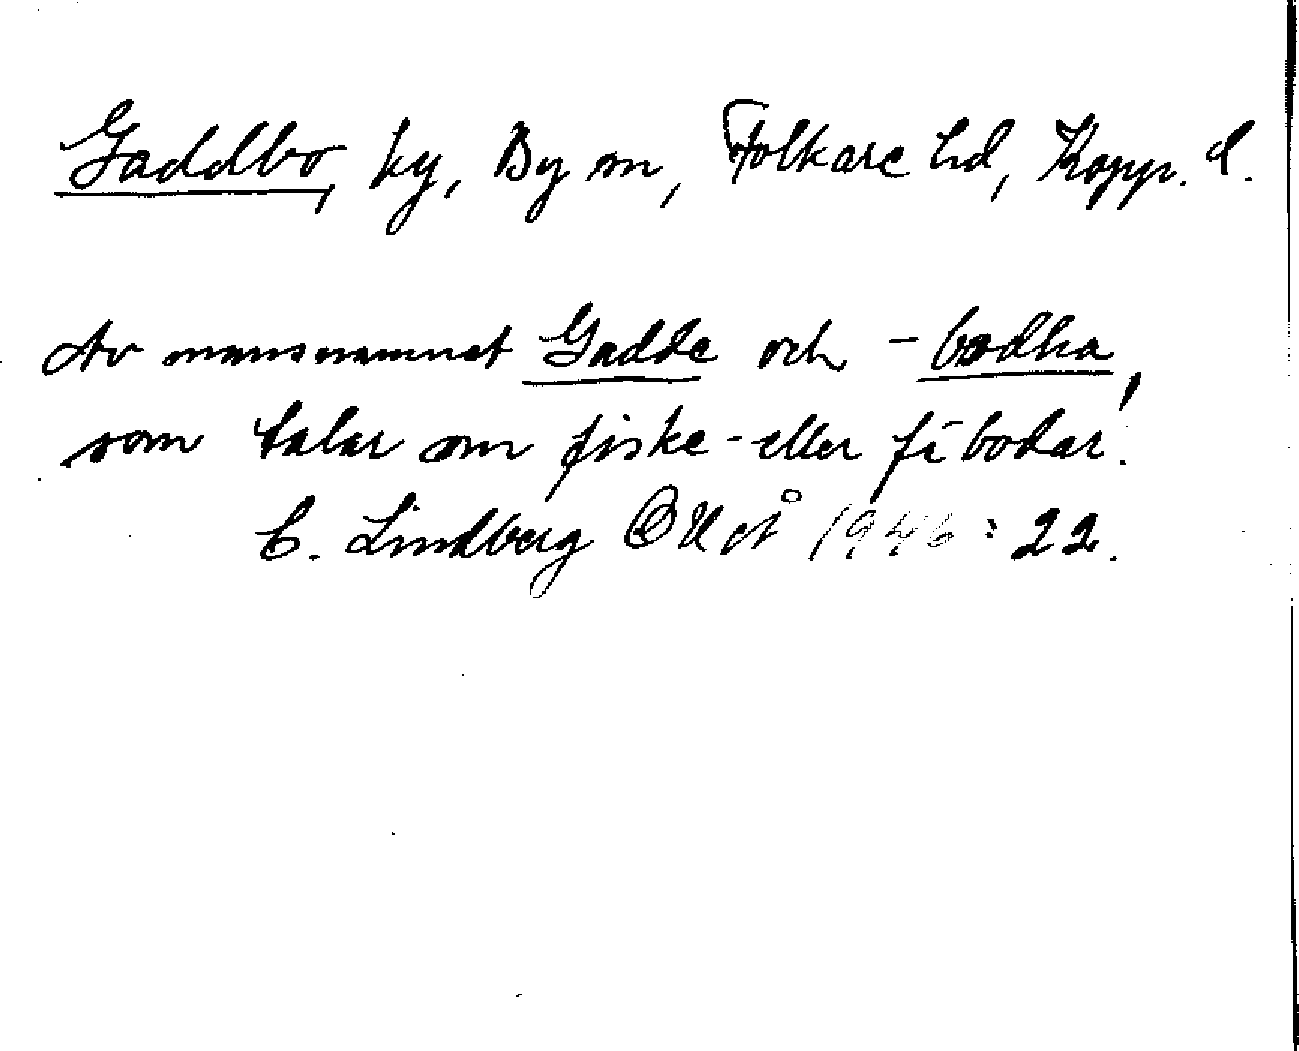 Gaddbo, by, By sn, Folkare hd, Kopp. l.
Av mansnamnet Gadde och -bodha,
som talar om fiske- eller fäbodar.
C. Lindberg 1946: 22.